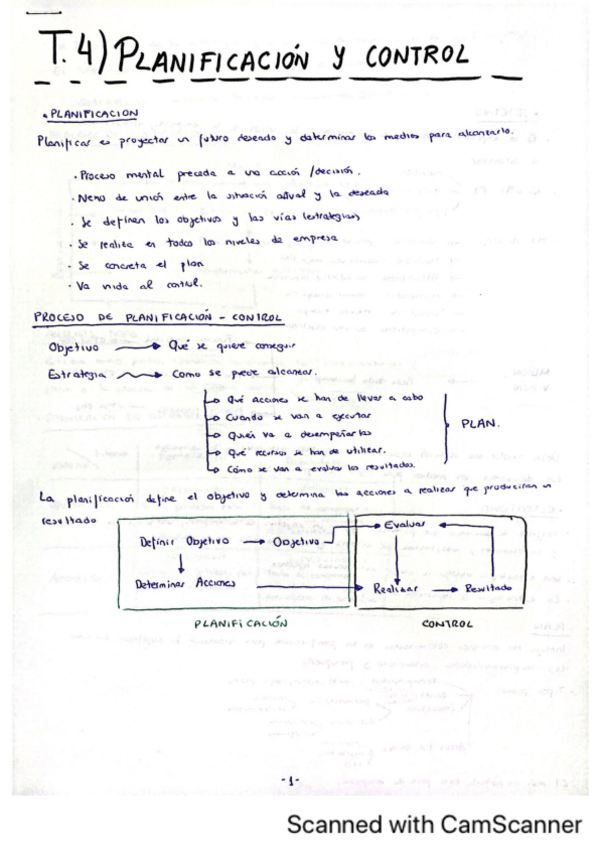 T.4) PLANIFICACIÓN Y CONTROL
• PLANIFICACION
Planificar es proyectar un futuro deseado y determinar los medios para alcanzarlo.
· Proceso mental precede a una acción / decisión.
· Nexo de unión entre la situación actual y la deseada
· Se definen los objetivos y las vías (estrategias)
· Se realiza en todos los niveles de empresa
· Se concreta el plan
· Va unida al control.
PROCESO DE PLANIFICACIÓN - CONTROL
Objetivo → Qué se quiere conseguir
Estrategia → Como se puede alcanzar.
→ Qué acciones se han de llevar a cabo
→ Cuando se van a ejecutar
→ Quién va a desempeñarlas
→ Qué recursos se han de utilizar.
→ Cómo se van a evaluar los resultados.
PLAN.
La planificación define el objetivo y determina las acciones a realizar que producirán un
resultado
Definir Objetivo → Objetivo → Evaluar
Determinar Acciones → Realizar → Resultado
PLANIFICACIÓN
CONTROL
-1-
Scanned with CamScanner